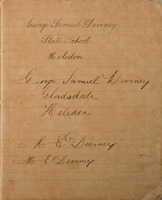 George Samuel Downey
State School
Helidon
George Samuel Downey
Helidon
M E Downey
M E Downey